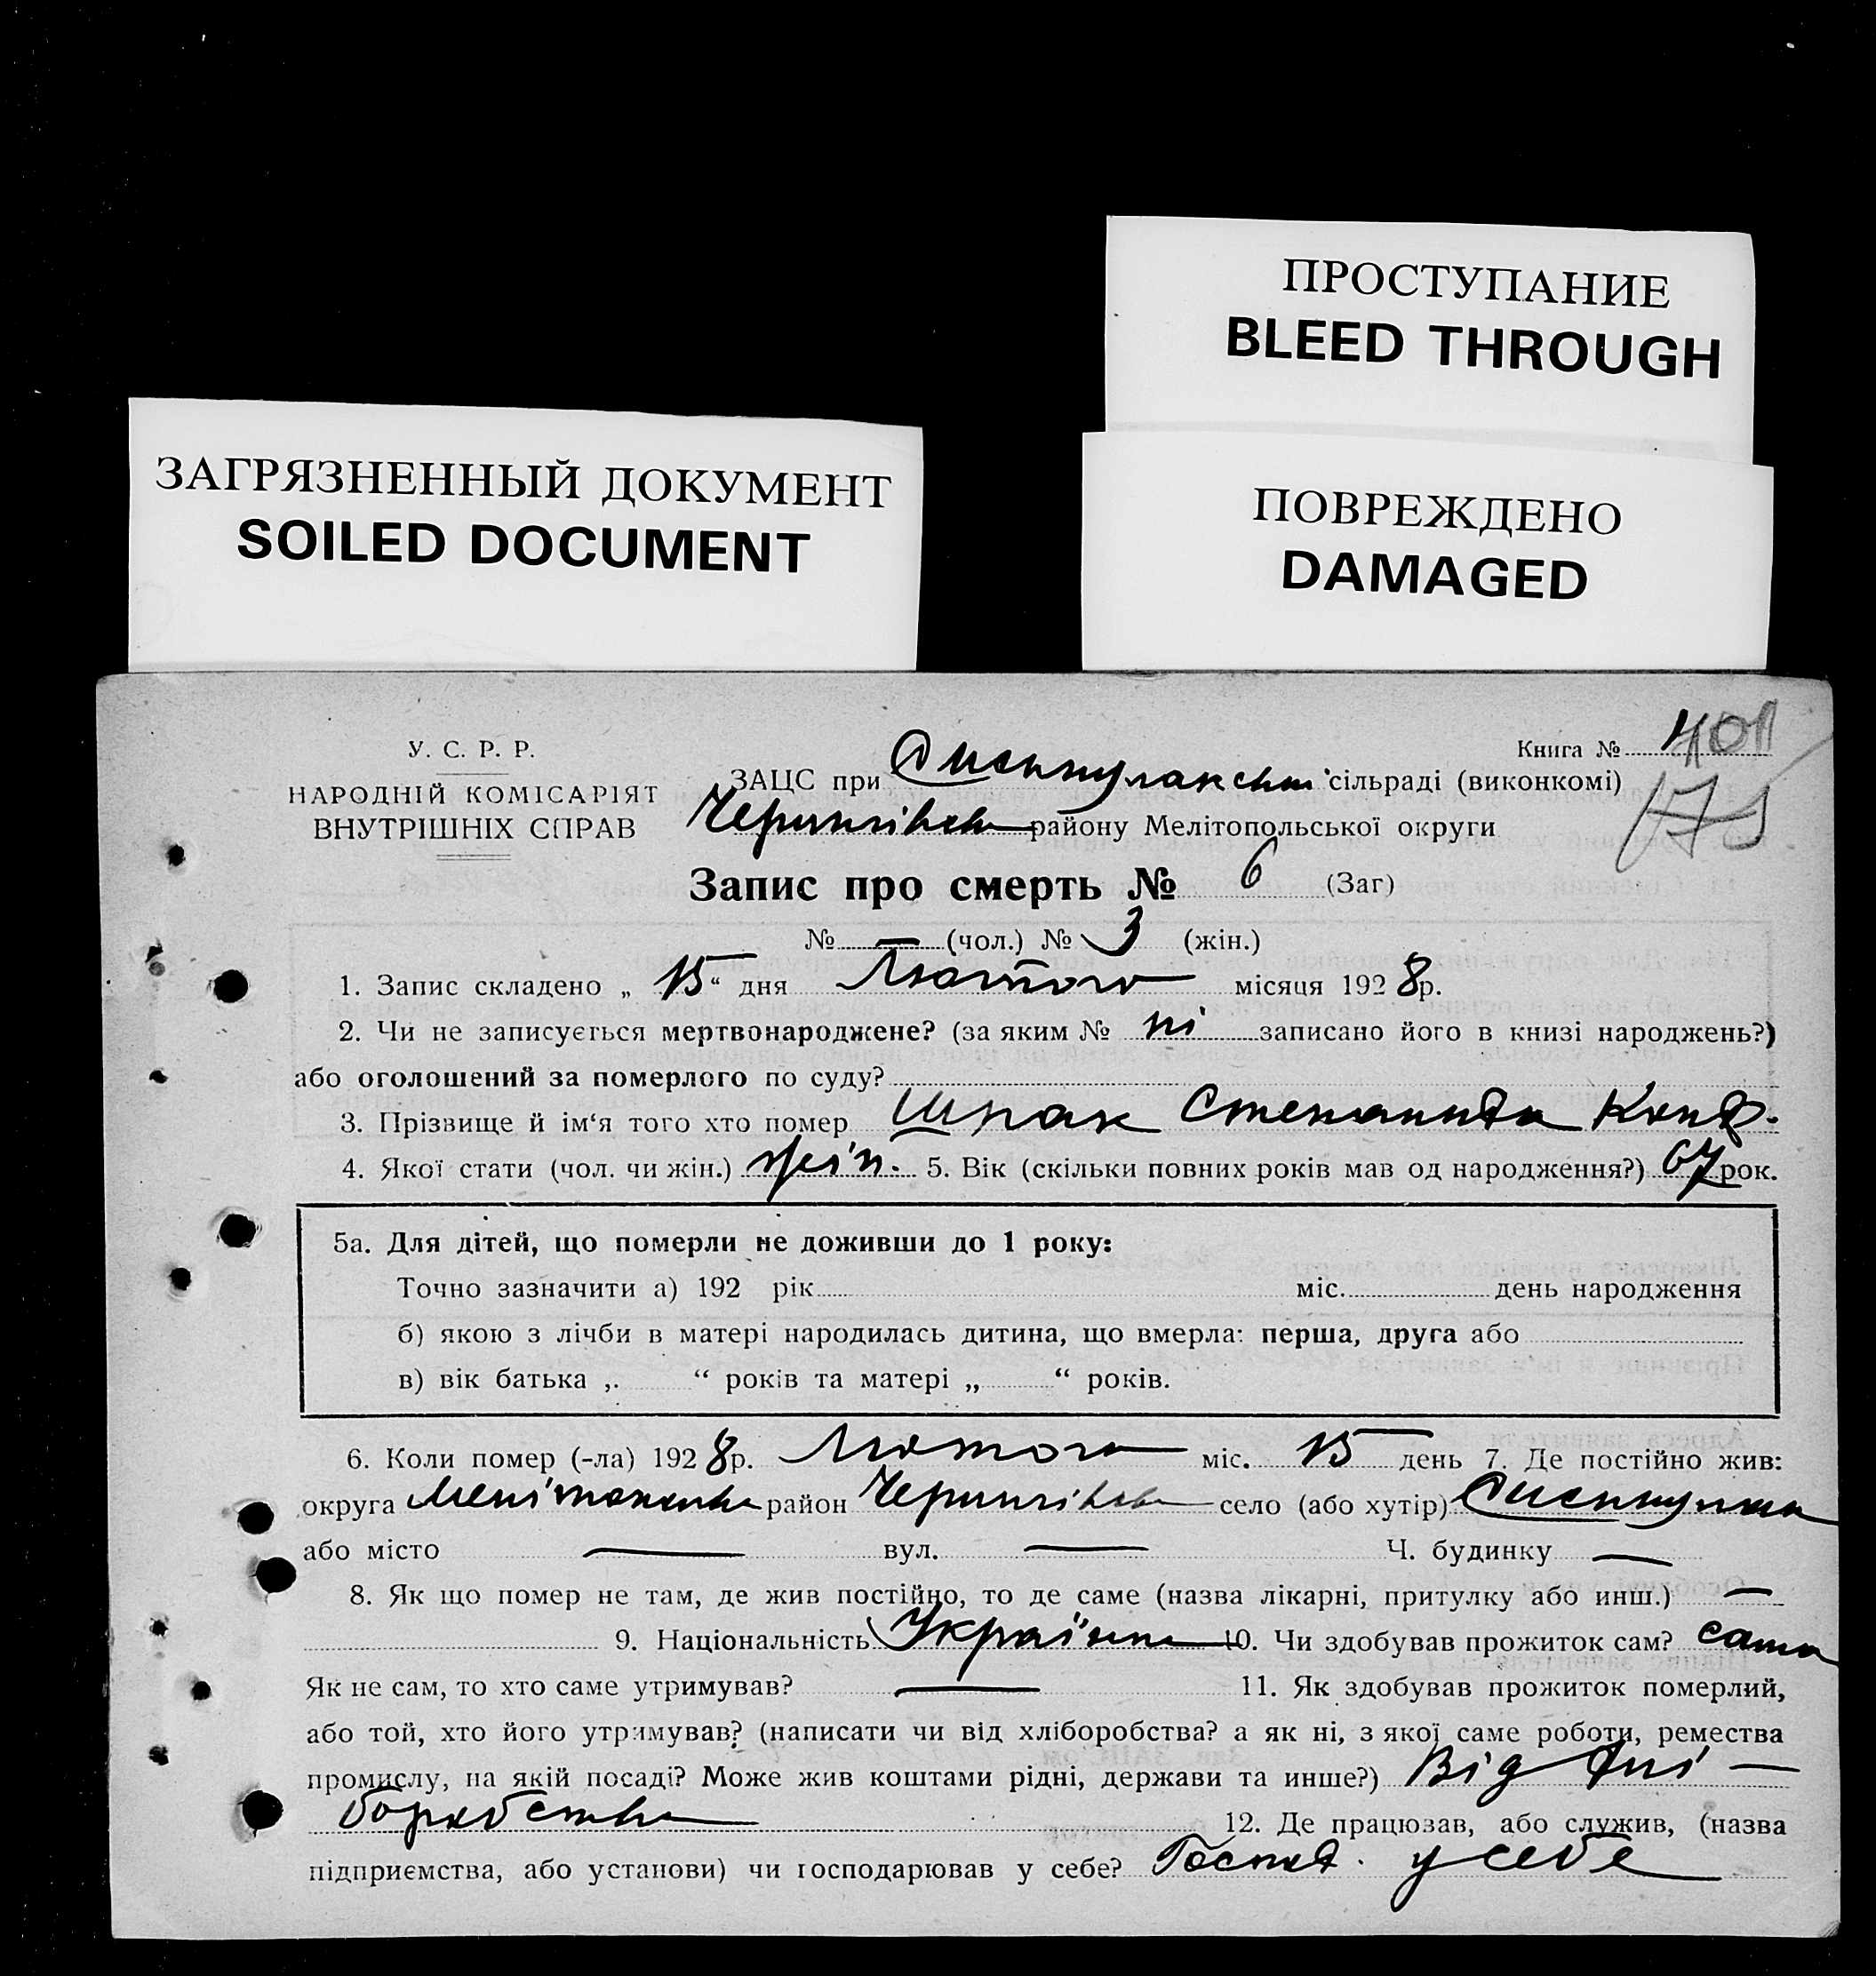 ПРОСТУПАНИЕ
BLEED THROUGH
ЗАГРЯЗНЕННЫЙ ДОКУМЕНТ
SOILED DOCUMENT
ПОВРЕЖДЕНО
DAMAGED
У. С. Р. Р.
НАРОДНІЙ КОМІСАРІЯТ
ВНУТРІШНІХ СПРАВ
Книга №
ЗАЦС при сільраді (виконкомі)
175
району Мелітопольської округи
Запис про смерть № 6 (Заг)
№ — (чол.) № 3 (жін.)
1. Запис складено „ 15 “ дня Лютого місяця 1928р.
2. Чи не записується мертвонароджене? (за яким № ні записано його в книзі народжень?)
або оголошений за померлого по суду?
3. Прізвище й ім‘я того хто помер Шпак Степанида
4. Якої стати (чол. чи жін.) жін. 5. Вік (скільки повних років мав од народження?) 67 рок.
5а. Для дітей, що померли не доживши до 1 року:
Точно зазначити а) 192 рік міс. день народження
б) якою з лічби в матері народилась дитина, що вмерла: перша, друга або
в) вік батька „ “ років та матері „ “ років.
6. Коли помер (-ла) 1928р. Лютого міс. 15 день 7. Де постійно жив:
округа район село (або хутір)
або місто — вул. — Ч. будинку —
8. Як що помер не там, де жив постійно, то де саме (назва лікарні, притулку або инш.) —
9. Національність Українка 10. Чи здобував прожиток сам? сама
Як не сам, то хто саме утримував? — 11. Як здобував прожиток померлий,
або той, хто його утримував? (написати чи від хліборобства? а як ні, з якої саме роботи, ремества
промислу, на якій посаді? Може жив коштами рідні, держави та инше?) Від хлі—
боробства 12. Де працював, або служив, (назва
підприємства, або установи) чи господарював у себе? Господ. у себе